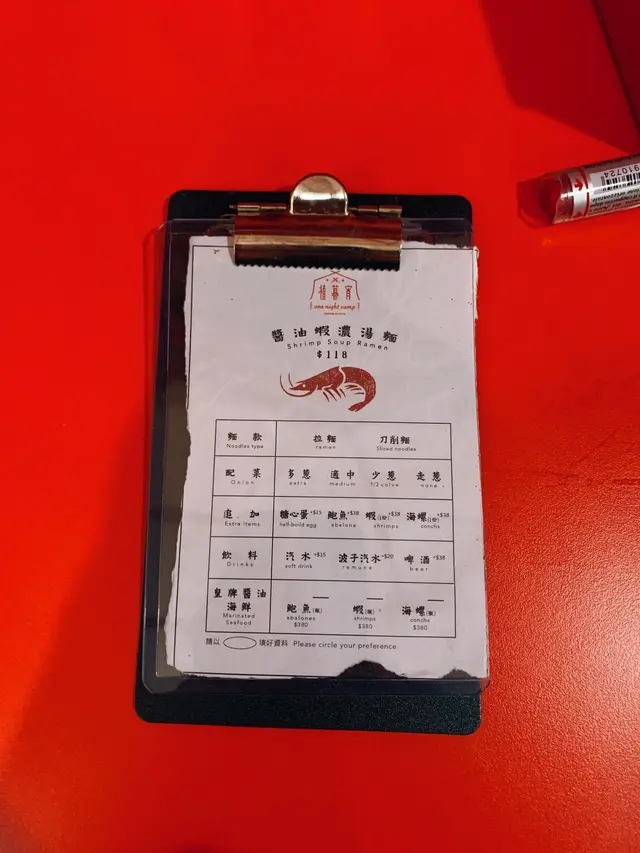 one night camp
醬油蝦濃湯麵
Shrimp Soup Ramen
$118
麵款 拉麵 刀削麵
Noodles type ramen Sliced noodles
配菜 多蔥 適中 少蔥 走蔥
Onion extra medium 1/2 calve none
追加 糖心蛋+$15 鮑魚+$38 蝦(1份)+$38 海螺(1份)+$38
Extra Items half-boild egg abalone shrimps conchs
飲料 汽水+$15 波子汽水+$20 啤酒+$38
Drinks soft drink ramune beer
皇牌醬油
海鮮 鮑魚 蝦 海螺
Marinated abalones shrimps conchs
Seafood $380 $380 $380
請以 填好資料 Please circle your preference
910724